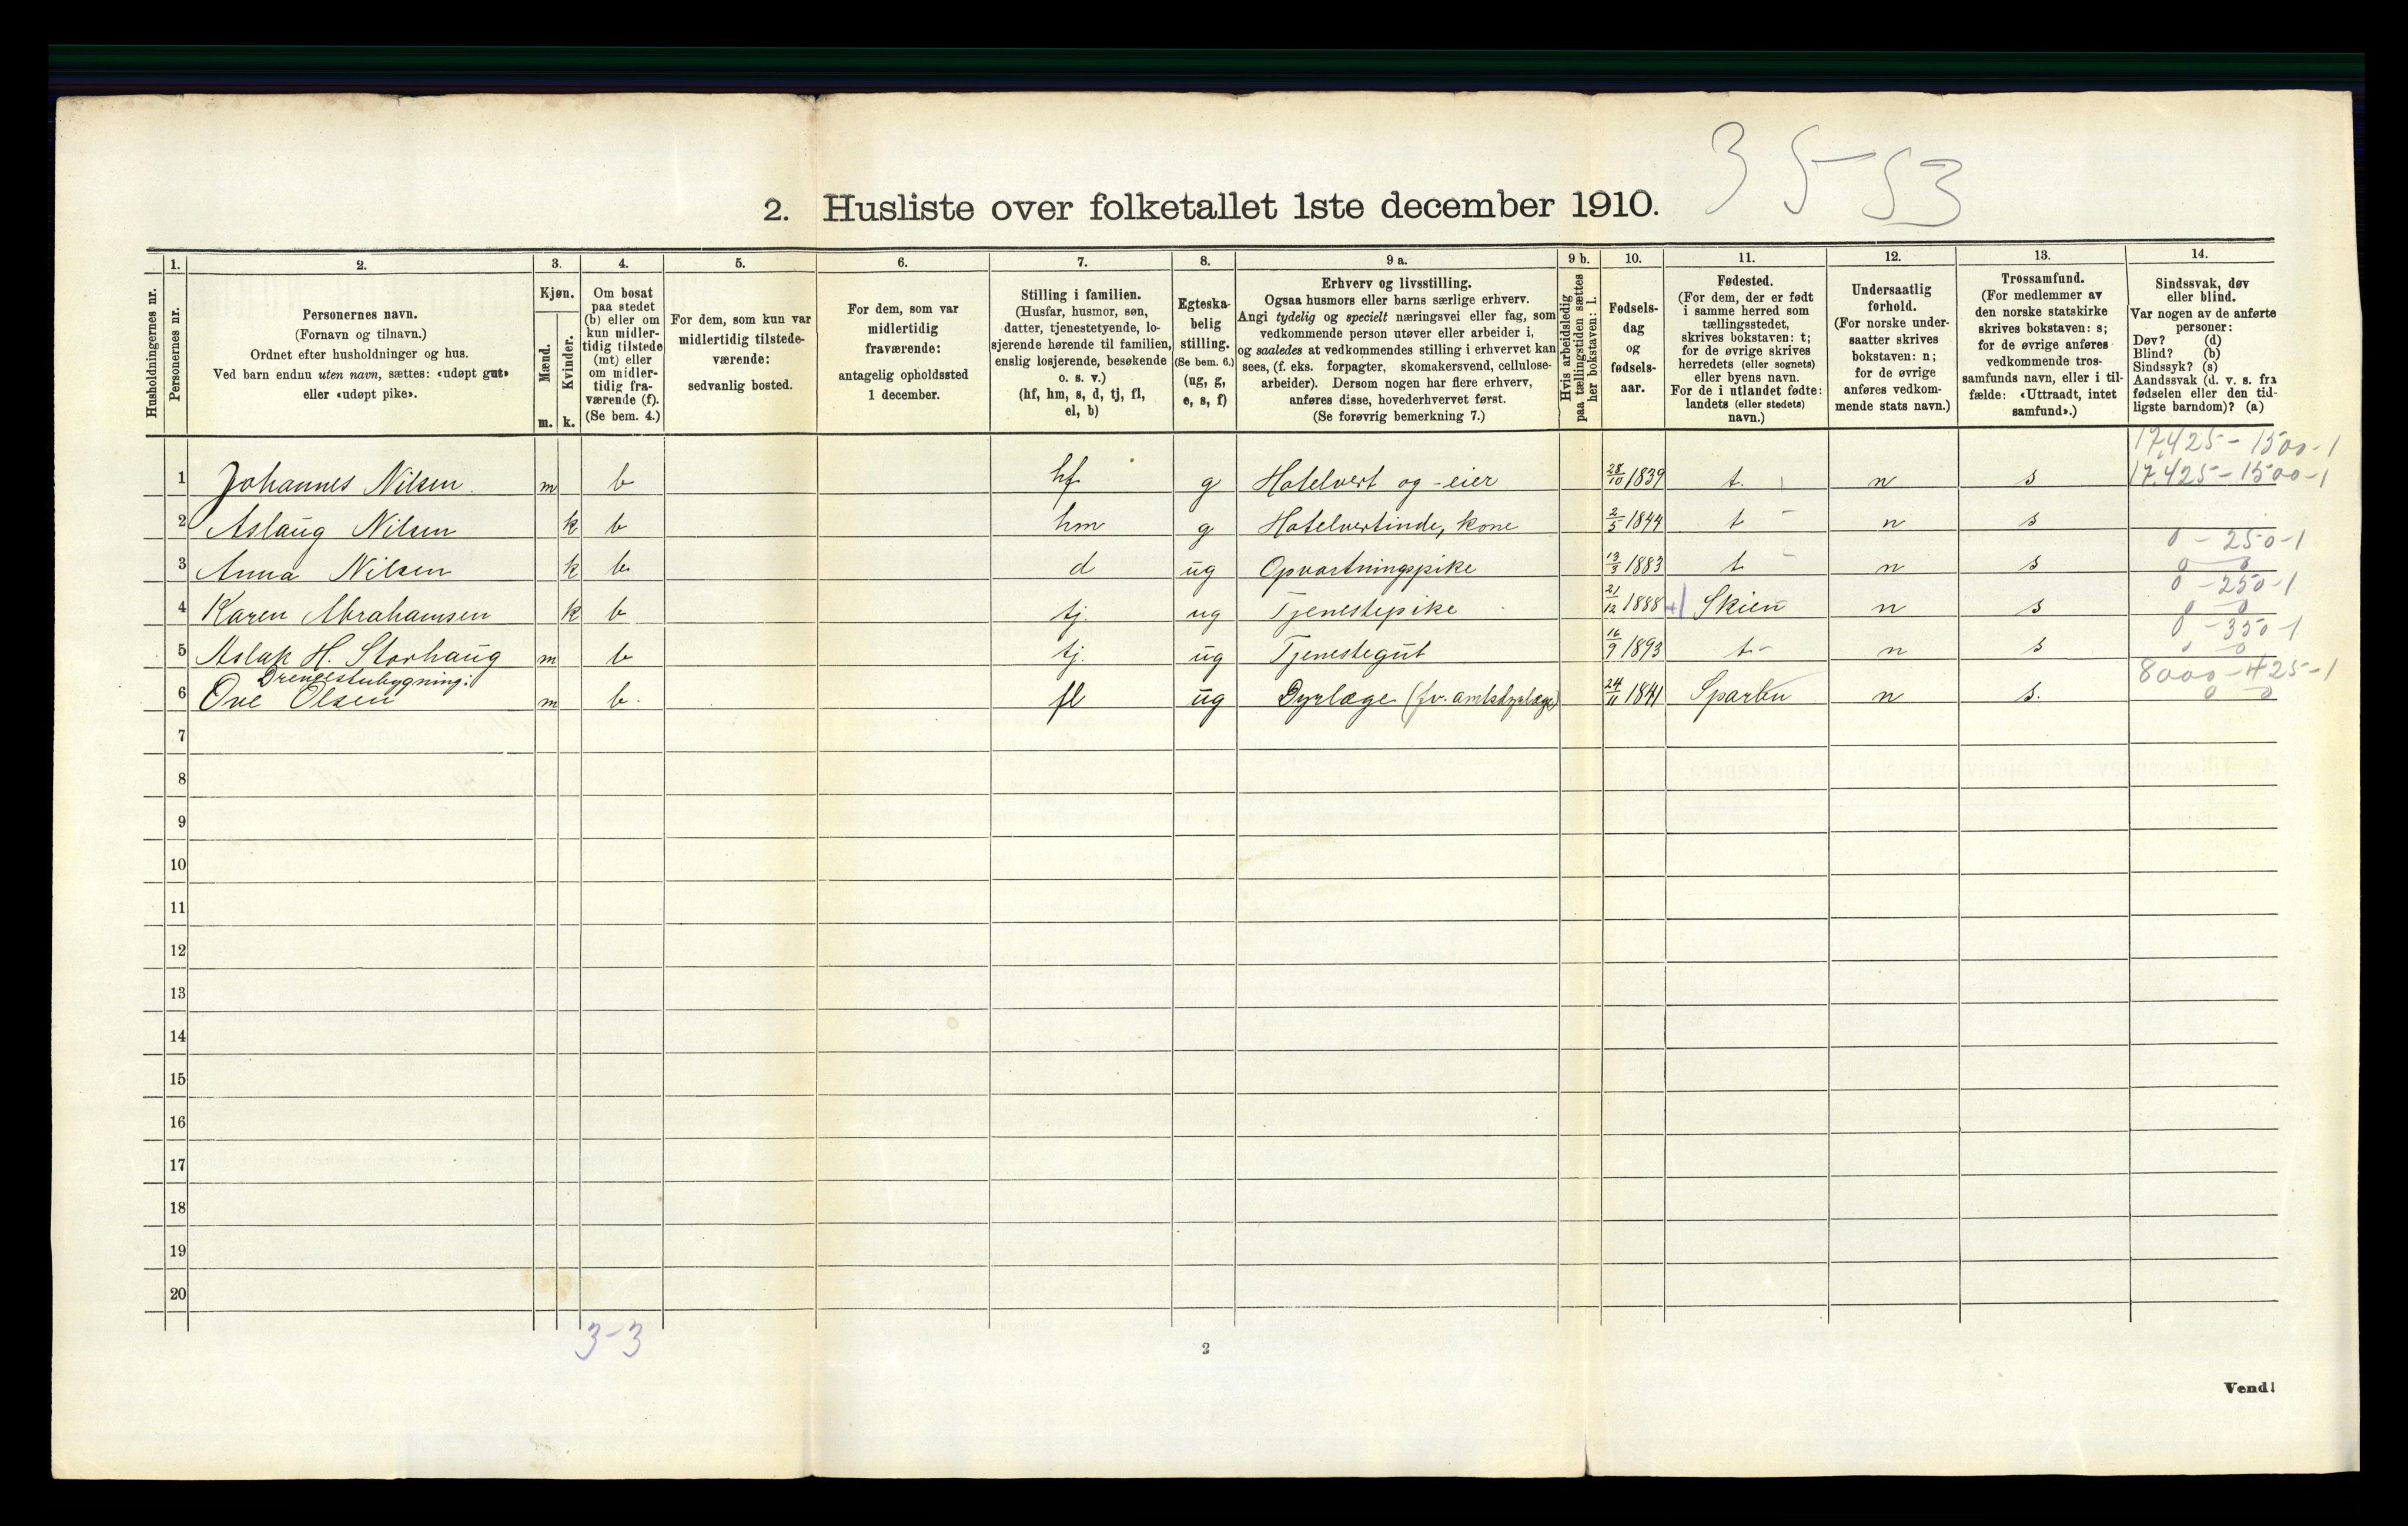 3 5 53
2. Husliste over folketallet 1ste december 1910.
Husholdningernes nr.
1. Personernes nr.
2. Personernes navn.
(Fornavn og tilnavn.)
Ordnet efter husholdninger og hus.
Ved barn endnu uten navn, sættes: «udøpt gut»
eller «udøpt pike».
3. Kjøn.
Mænd. m.
Kvinder. k.
4. Om bosat
paa stedet
(b) eller om
kun midler-
tidig tilstede
(mt) eller
om midler-
tidig fra-
værende (f).
(Se bem. 4.)
5. For dem, som kun var
midlertidig tilstede-
værende:
sedvanlig bosted.
6. For dem, som var
midlertidig
fraværende:
antagelig opholdssted
1 december.
7. Stilling i familien.
(Husfar, husmor, søn,
datter, tjenestetyende, lo-
sjerende hørende til familien,
enslig losjerende, besøkende
o. s. v.)
(hf, hm, s, d, tj, fl,
el, b)
8. Egteska-
belig
stilling.
(Se bem. 6.)
(ug, g,
e, s, f)
9 a. Erhverv og livsstilling.
Ogsaa husmors eller barns særlige erhverv.
Angi tydelig og specielt næringsvei eller fag, som
vedkommende person utøver eller arbeider i,
og saaledes at vedkommendes stilling i erhvervet kan
sees, (f. eks. forpagter, skomakersvend, cellulose-
arbeider). Dersom nogen har flere erhverv,
anføres disse, hovederhvervet først.
(Se forøvrig bemerkning 7.)
9 b. Hvis arbeidsledig
paa tællingstiden sættes
her bokstaven: l.
10. Fødsels-
dag
og
fødsels-
aar.
11. Fødested.
(For dem, der er født
i samme herred som
tællingsstedet,
skrives bokstaven: t;
for de øvrige skrives
herredets (eller sognets)
eller byens navn.
For de i utlandet fødte:
landets (eller stedets)
navn.)
12. Undersaatlig
forhold.
(For norske under-
saatter skrives
bokstaven: n;
for de øvrige
anføres vedkom-
mende stats navn.)
13. Trossamfund.
(For medlemmer av
den norske statskirke
skrives bokstaven: s;
for de øvrige anføres
vedkommende tros-
samfunds navn, eller i til-
fælde: «Uttraadt, intet
samfund».)
14. Sindssvak, døv
eller blind.
Var nogen av de anførte
personer:
Døv? (d)
Blind? (b)
Sindssyk? (s)
Aandssvak (d. v. s. fra
fødselen eller den tid-
ligste barndom)? (a)
17,425 - 1500 - 1
1 Johannes Nilsen m b hf g Hotelvert og -eier 28/10 1839 t. n s 17,425 - 1500 - 1
2 Aslaug Nilsen k b hm g Hotelvertinde, kone 2/5 1844 t n s
0 - 250 - 1
3 Anna Nilsen k b d ug Opvartningspike 13/3 1883 t n s 0 0
0 - 250 - 1
4 Karen Abrahamsen k b tj. ug Tjenestepike 21/12 1888 Skien n s 0 - 0
0 - 350 - 1
5 Aslak H. Storhaug m b tj. ug Tjenestegut 16/9 1893 t n s
Drengestubygning:
8000 - 425 - 1
6 Ove Olsen m b. fl ug Dyrlæge (fv. amtsdyrlæge) 24/11 1841 Sparbu n s. 0 0
7
8
9
10
11
12
13
14
15
16
17
18
19
20
3-3
2
Vend!